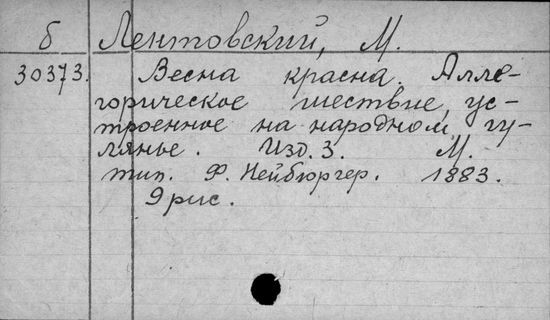 б Лентовский, М.
30373. Весна красна. Алле-
горическое шествие, ус-
троенное на народном гу-
лянье. Изд. 3. М.
тип. Ф. Нейбюргер. 1883.
9 рис.